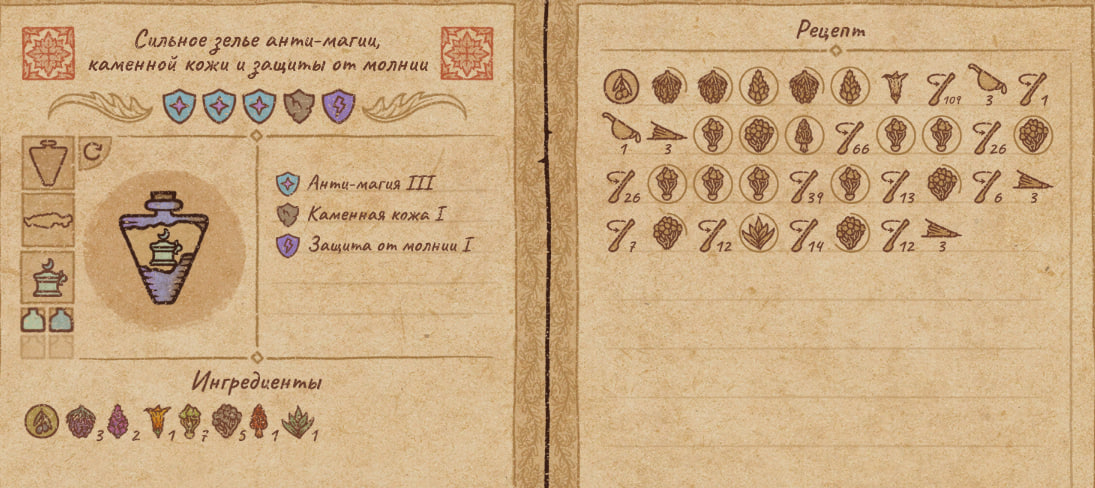 Сильное зелье анти-магии,
каменной кожи и защиты от молнии
Анти-магия III
Каменная кожа I
Защита от молнии I
Ингредиенты
3 2 1 7 5 1 1
Рецепт
109 3 1
1 3 66 26
26 39 13 6 3
7 12 14 12 3